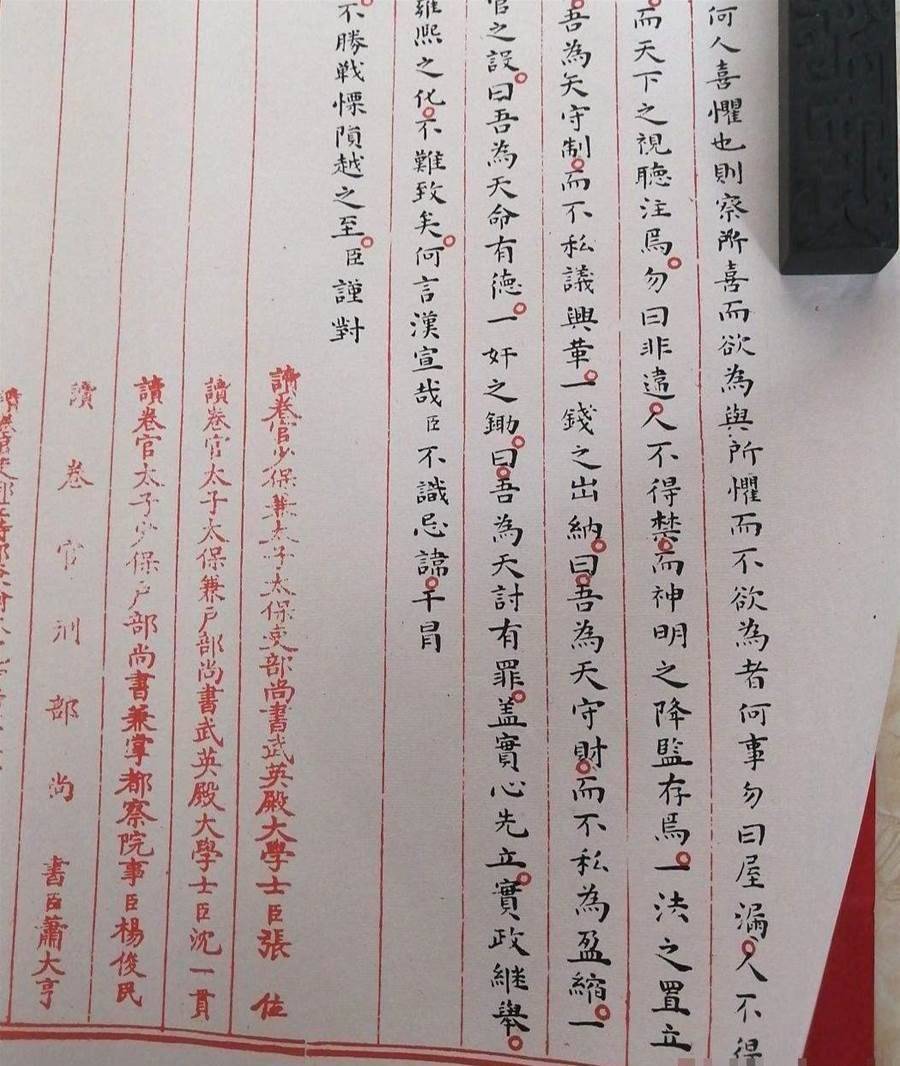 何人喜懼也則察所喜而欲為與所懼而不欲為者何事勿曰屋漏人不得
而天下之視聽注焉勿曰非違人不得禁而神明之降監存焉一法之置立
吾為天守制而不私議興革一錢之出納曰吾為天守財而不私為盈縮一
官之設曰吾為天命有德一奸之鋤曰吾為天討有罪蓋實心先立實政繼舉
雍熙之化不難致矣何言漢宣哉臣不識忌諱干冐
不勝戰慄隕越之至臣謹對
讀卷官少保兼太子太保吏部尚書武英殿大學士臣張位
讀卷官太子太保兼戶部尚書武英殿大學士臣沈一貫
讀卷官太子少保戶部尚書兼掌都察院事臣楊俊民
讀卷官刑部尚書臣蕭大亨